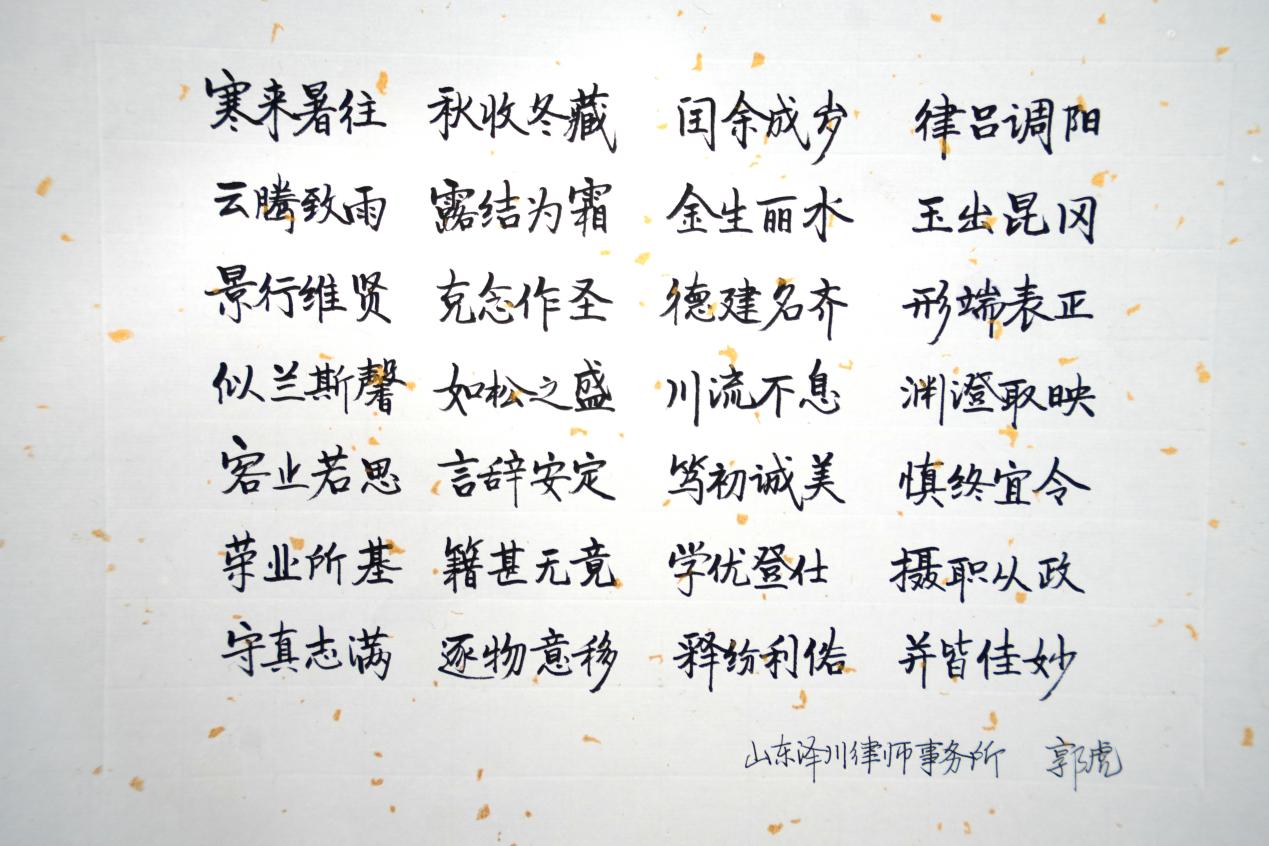 寒来暑往 秋收冬藏 闰余成岁 律吕调阳
云腾致雨 露结为霜 金生丽水 玉出昆冈
景行维贤 克念作圣 德建名齐 形端表正
似兰斯馨 如松之盛 川流不息 渊澄取映
容止若思 言辞安定 笃初诚美 慎终宜令
荣业所基 籍甚无竟 学优登仕 摄职从政
守真志满 逐物意移 释纷利俗 并皆佳妙
山东泽川律师事务所 郭虎